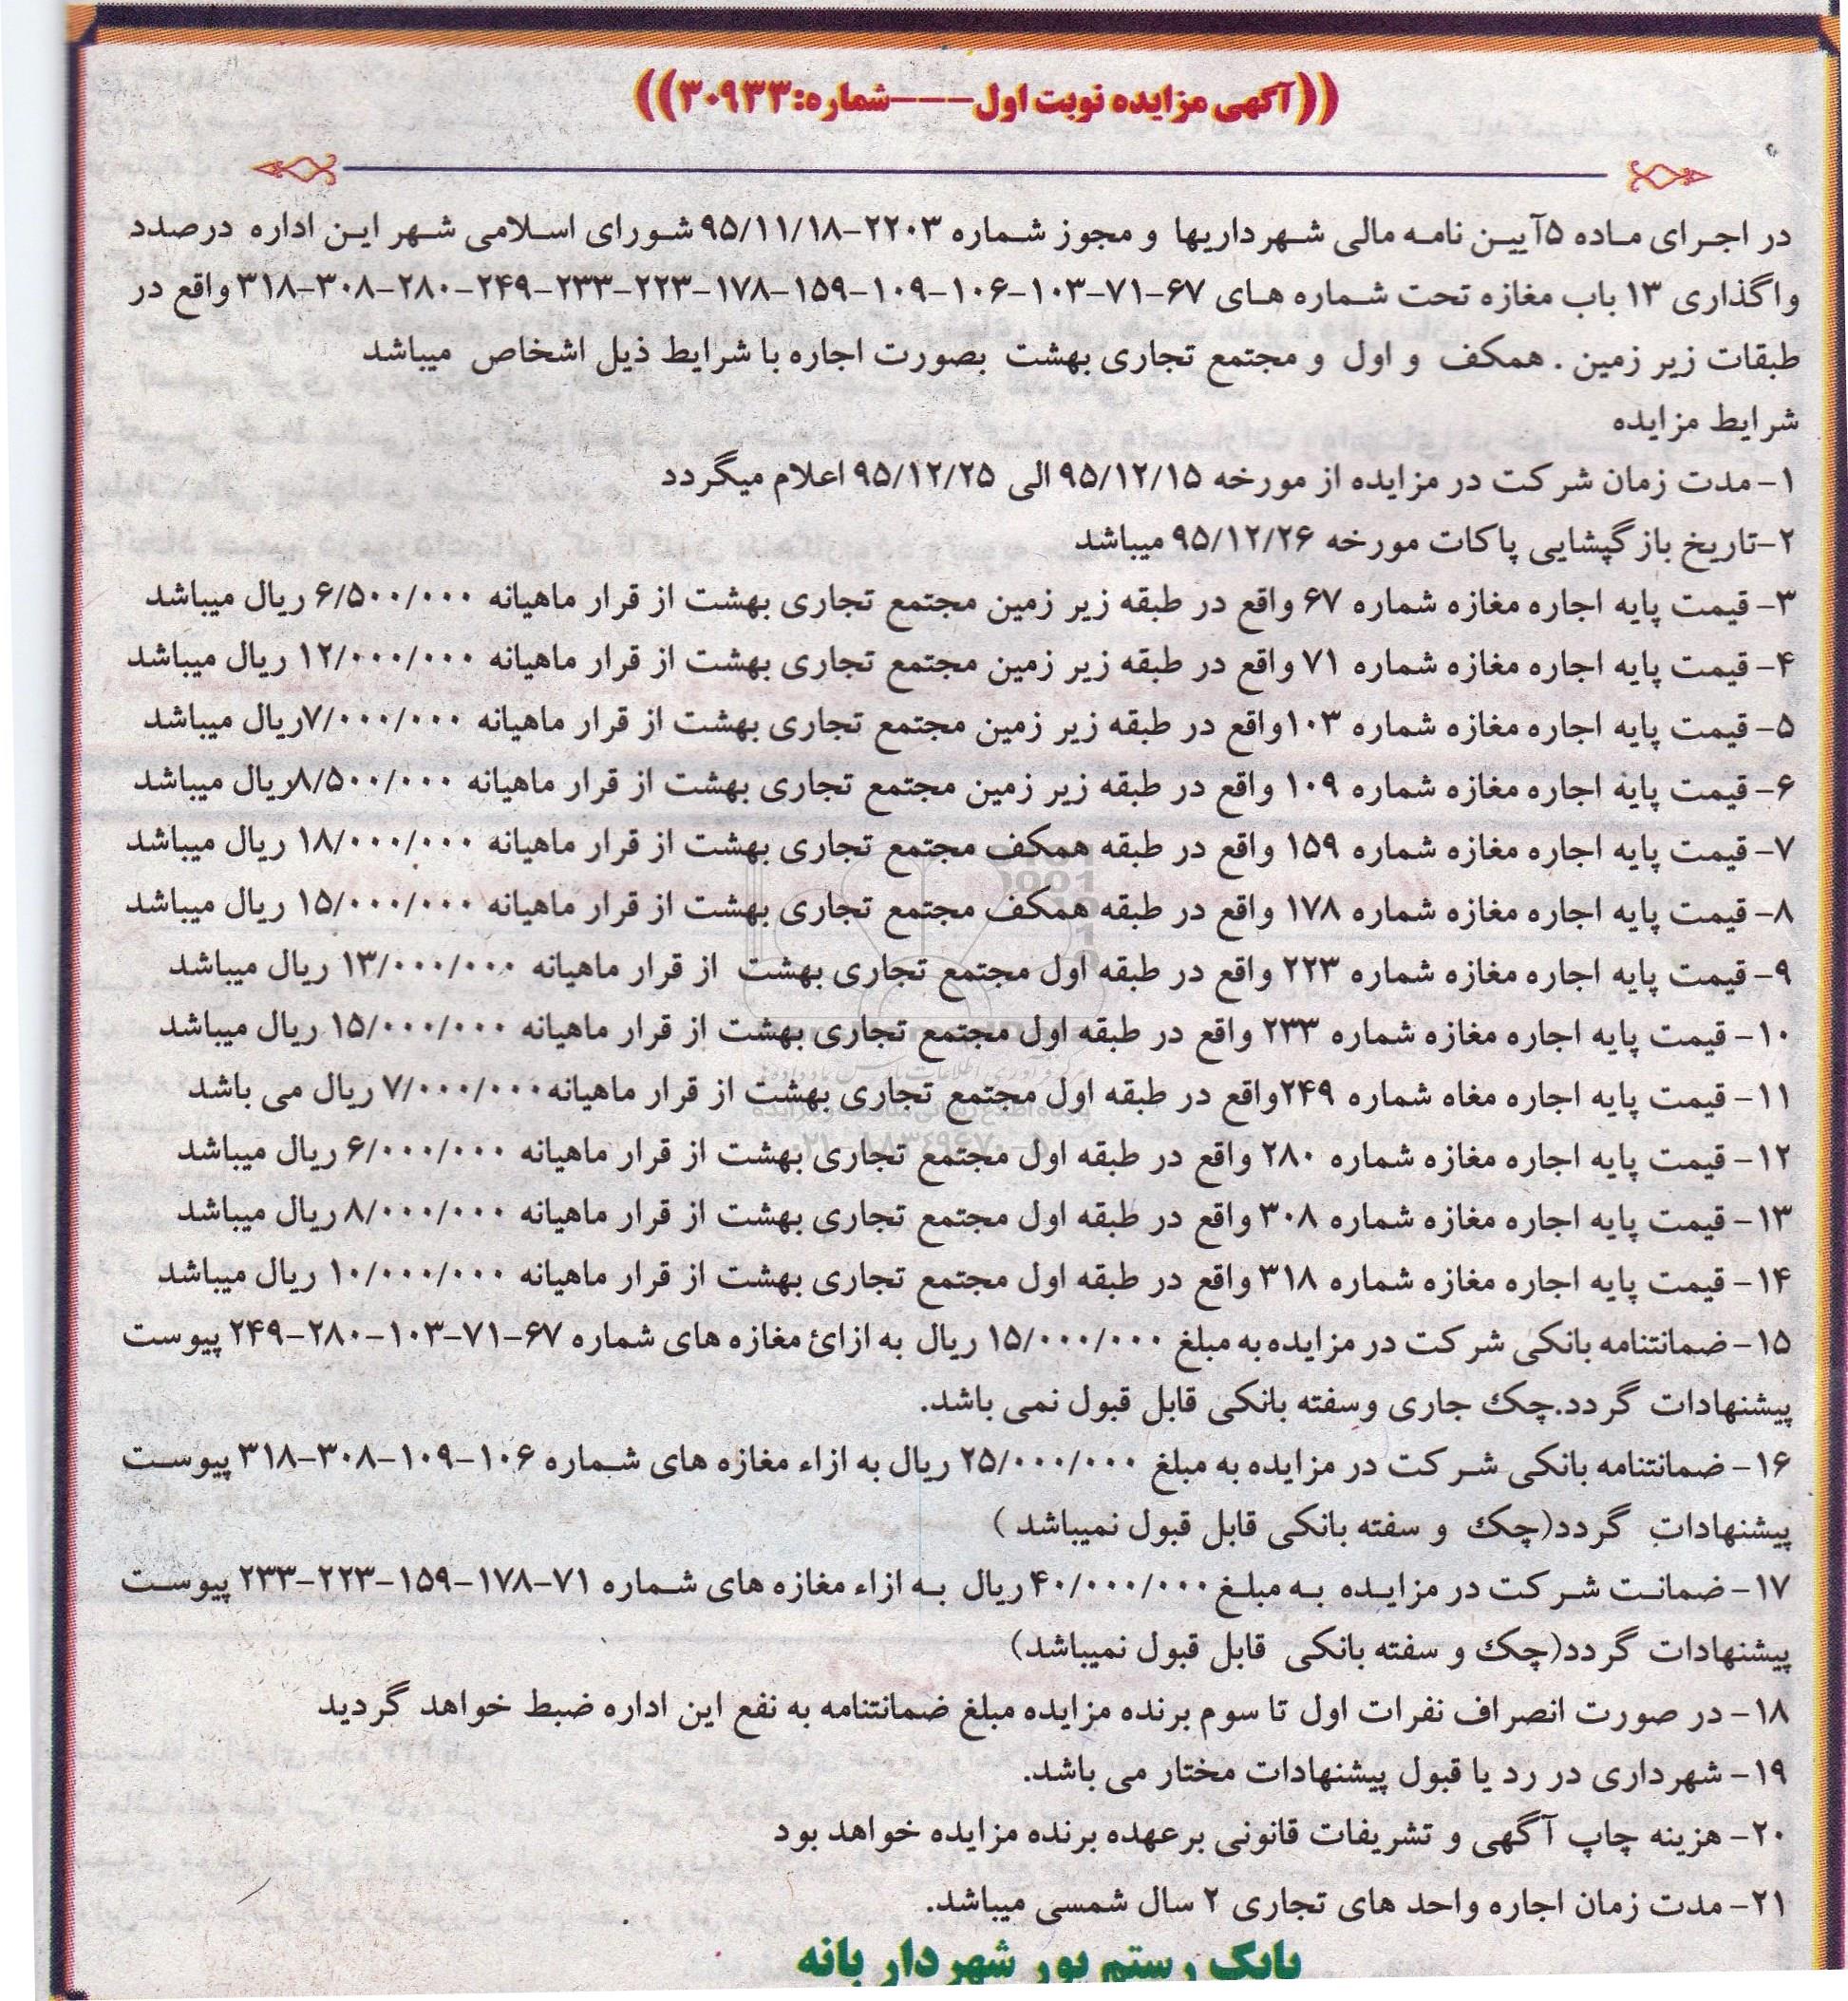 ((آگهی مزایده نوبت اول---شماره:۳۰۹۳۳))
در اجرای ماده ۵آیین نامه مالی شهرداریها و مجوز شماره ۲۲۰۳-۹۵/۱۱/۱۸شورای اسلامی شهر این اداره درصدد
واگذاری ۱۳ باب مغازه تحت شماره های ۶۷-۷۱-۱۰۳-۱۰۶-۱۰۹-۱۵۹-۱۷۸-۲۲۳-۲۳۳-۲۴۹-۲۸۰-۳۰۸-۳۱۸ واقع در
طبقات زیر زمین . همکف و اول و مجتمع تجاری بهشت بصورت اجاره با شرایط ذیل اشخاص میباشد
شرایط مزایده
۱- مدت زمان شرکت در مزایده از مورخه ۹۵/۱۲/۱۵ الی ۹۵/۱۲/۲۵ اعلام میگردد
۲-تاریخ بازگپشایی پاکات مورخه ۹۵/۱۲/۲۶ میباشد
۳- قیمت پایه اجاره مغازه شماره ۶۷ واقع در طبقه زیر زمین مجتمع تجاری بهشت از قرار ماهیانه ۶/۵۰۰/۰۰۰ ریال میباشد
۴- قیمت پایه اجاره مغازه شماره ۷۱ واقع در طبقه زیر زمین مجتمع تجاری بهشت از قرار ماهیانه ۱۲/۰۰۰/۰۰۰ ریال میباشد
۵- قیمت پایه اجاره مغازه شماره ۱۰۳واقع در طبقه زیر زمین مجتمع تجاری بهشت از قرار ماهیانه ۷/۰۰۰/۰۰۰ریال میباشد
۶- قیمت پایه اجاره مغازه شماره ۱۰۹ واقع در طبقه زیر زمین مجتمع تجاری بهشت از قرار ماهیانه ۸/۵۰۰/۰۰۰ریال میباشد
۷- قیمت پایه اجاره مغازه شماره ۱۵۹ واقع در طبقه همکف مجتمع تجاری بهشت از قرار ماهیانه ۱۸/۰۰۰/۰۰۰ ریال میباشد
۸- قیمت پایه اجاره مغازه شماره ۱۷۸ واقع در طبقه همکف مجتمع تجاری بهشت از قرار ماهیانه ۱۵/۰۰۰/۰۰۰ ریال میباشد
۹- قیمت پایه اجاره مغازه شماره ۲۲۳ واقع در طبقه اول مجتمع تجاری بهشت از قرار ماهیانه ۱۳/۰۰۰/۰۰۰ ریال میباشد
۱۰- قیمت پایه اجاره مغازه شماره ۲۳۳ واقع در طبقه اول مجتمع تجاری بهشت از قرار ماهیانه ۱۵/۰۰۰/۰۰۰ ریال میباشد
۱۱- قیمت پایه اجاره مغاه شماره ۲۴۹واقع در طبقه اول مجتمع تجاری بهشت از قرار ماهیانه۷/۰۰۰/۰۰۰ ریال می باشد
۱۲- قیمت پایه اجاره مغازه شماره ۲۸۰ واقع در طبقه اول مجتمع تجاری بهشت از قرار ماهیانه ۶/۰۰۰/۰۰۰ ریال میباشد
۱۳- قیمت پایه اجاره مغازه شماره ۳۰۸ واقع در طبقه اول مجتمع تجاری بهشت از قرار ماهیانه ۸/۰۰۰/۰۰۰ ریال میباشد
۱۴- قیمت پایه اجاره مغازه شماره ۳۱۸ واقع در طبقه اول مجتمع تجاری بهشت از قرار ماهیانه ۱۰/۰۰۰/۰۰۰ ریال میباشد
۱۵- ضمانتنامه بانکی شرکت در مزایده به مبلغ ۱۵/۰۰۰/۰۰۰ ریال به ازائ مغازه های شماره ۶۷-۷۱-۱۰۳-۲۸۰-۲۴۹ پیوست
پیشنهادات گردد.چک جاری وسفته بانکی قابل قبول نمی باشد.
۱۶- ضمانتنامه بانکی شرکت در مزایده به مبلغ ۲۵/۰۰۰/۰۰۰ ریال به ازاء مغازه های شماره ۱۰۶-۱۰۹-۳۰۸-۳۱۸ پیوست
پیشنهادات گردد(چک و سفته بانکی قابل قبول نمیباشد )
۱۷- ضمانت شرکت در مزایده به مبلغ ۴۰/۰۰۰/۰۰۰ ریال به ازاء مغازه های شماره ۷۱-۱۷۸-۱۵۹-۲۲۳-۲۳۳ پیوست
پیشنهادات گردد(چک و سفته بانکی قابل قبول نمیباشد)
۱۸- در صورت انصراف نفرات اول تا سوم برنده مزایده مبلغ ضمانتنامه به نفع این اداره ضبط خواهد گردید
۱۹- شهرداری در رد یا قبول پیشنهادات مختار می باشد.
۲۰- هزینه چاپ آگهی و تشریفات قانونی برعهده برنده مزایده خواهد بود
۲۱- مدت زمان اجاره واحد های تجاری ۲ سال شمسی میباشد.
بابک رستم پور شهردار بانه